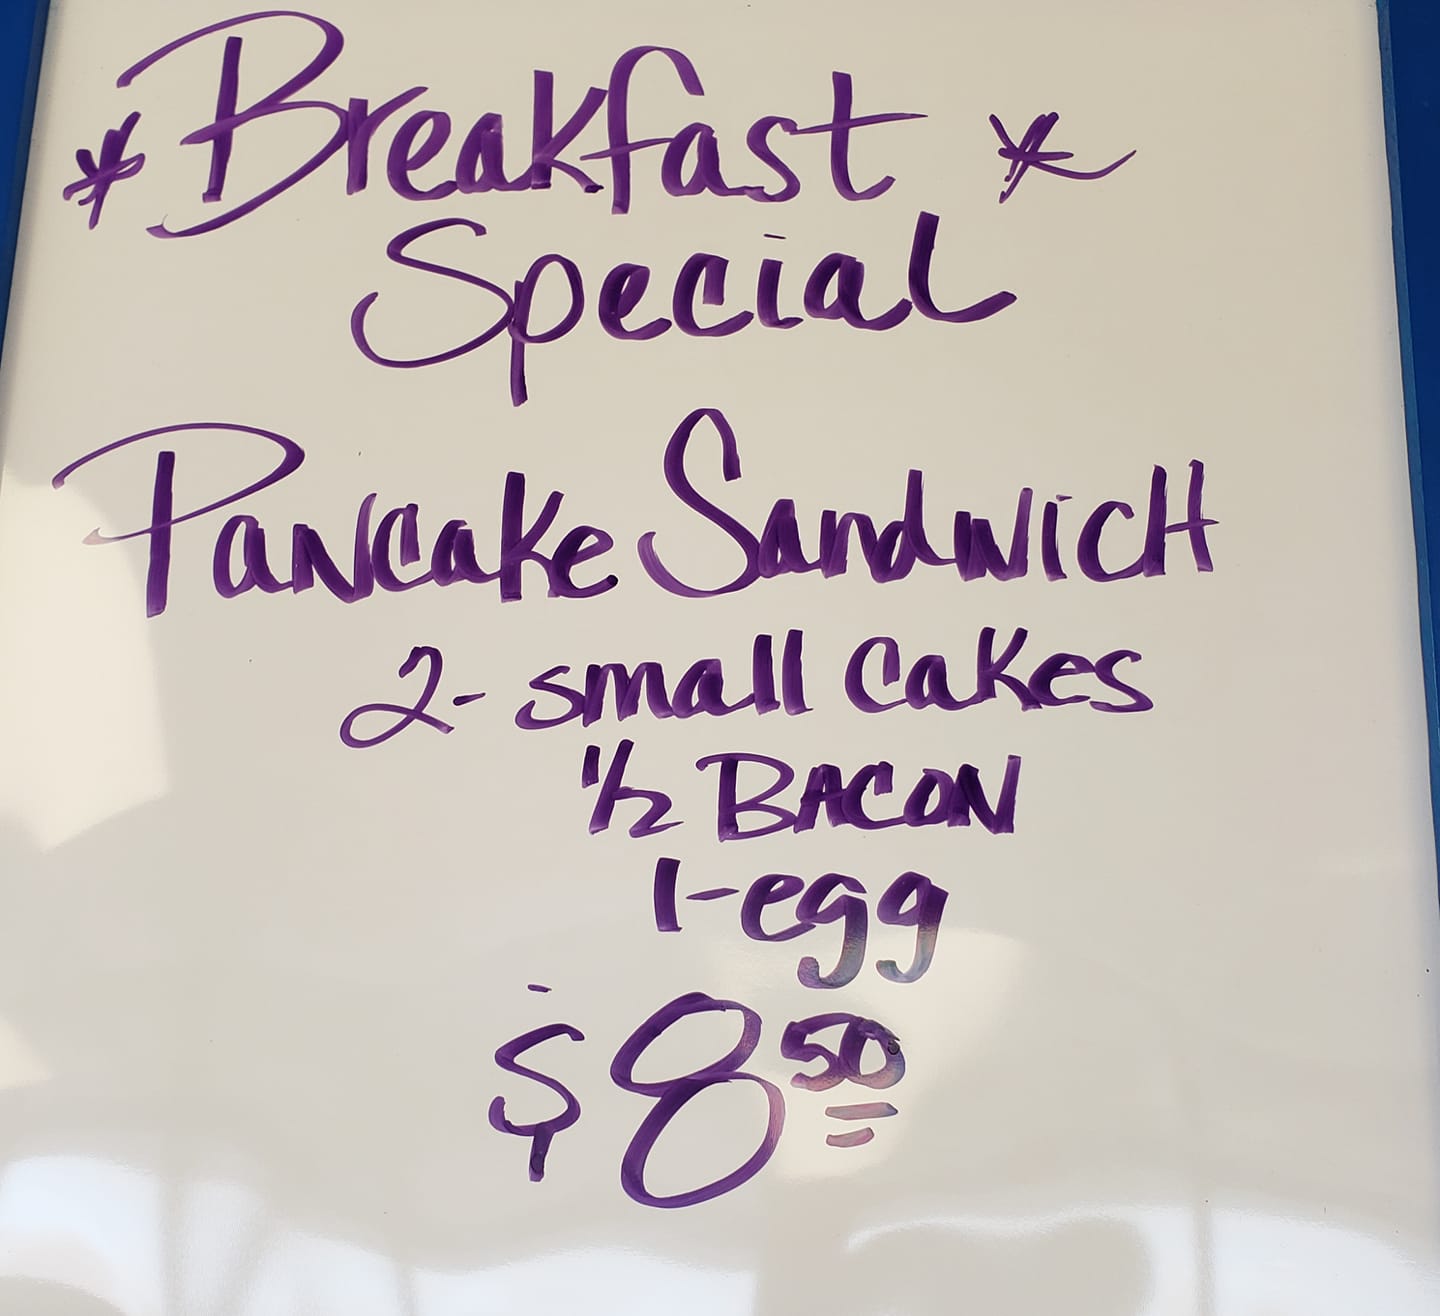 * Breakfast *
Special
Pancake Sandwich
2- small cakes
1/2 BACON
1-egg
$8 50